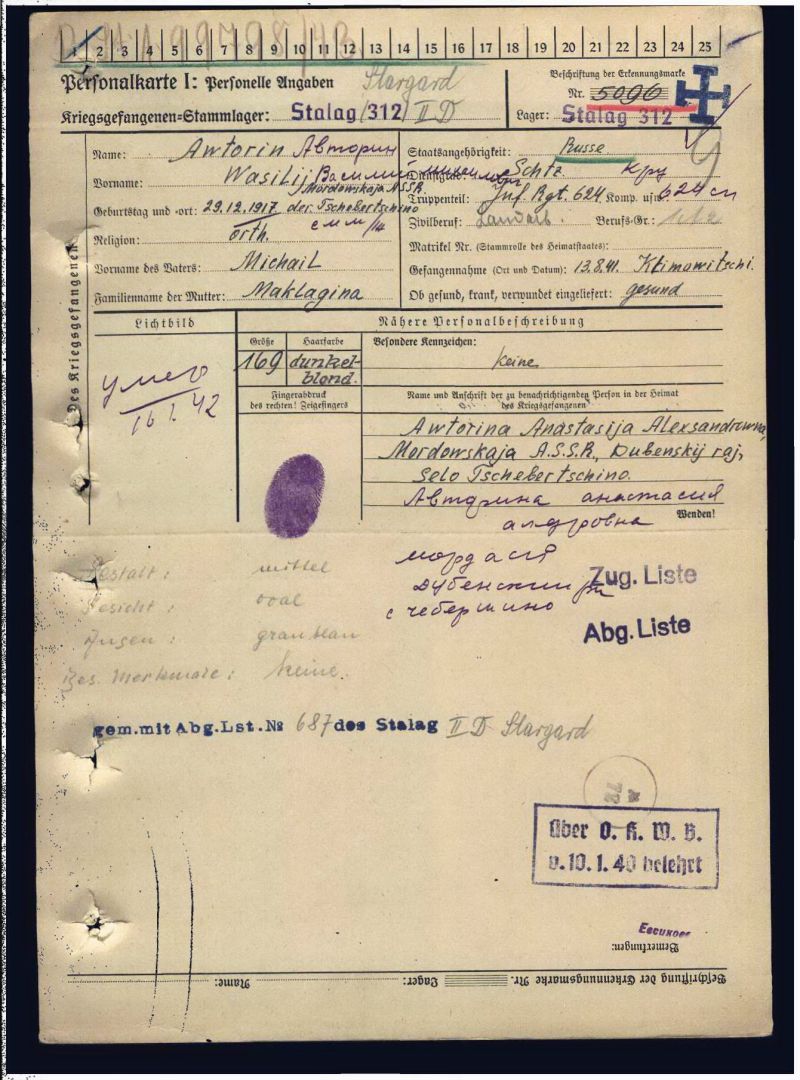 1 2 3 4 5 6 7 8 9 10 11 12 13 14 15 16 17 18 19 20 21 22 23 24 25
Personalkarte I: Personelle Angaben
Stargard
Kriegsgefangenen=Stammlager: Stalag (312) II D
Beschriftung der Erkennungsmarke
Nr. 5096
Lager: Stalag 312
Des Kriegsgefangenen
Name: Awtorin Авторин
Vorname: Wasilij Василий
Mordowskaja A.S.S.R.
Geburtstag und -ort: 29.12.1917 der. Tschebertschino
Religion: orth.
Vorname des Vaters: Michail
Familienname der Mutter: Maklagina
Staatsangehörigkeit: Russe
Dienstgrad: Schtz кр
Truppenteil: Inf. Rgt. 624 Komp. usw. 624 сп
Zivilberuf: Landarb. Berufs-Gr.:
Matrikel Nr. (Stammrolle des Heimatstaates):
Gefangennahme (Ort und Datum): 13.8.41. Klimowitschi.
Ob gesund, krank, verwundet eingeliefert: gesund
Lichtbild
умер
16.1.42
Nähere Personalbeschreibung
Größe
169
Haarfarbe
dunkel-
blond.
Besondere Kennzeichen:
keine
Fingerabdruck
des rechten! Zeigefingers
Name und Anschrift der zu benachrichtigenden Person in der Heimat
des Kriegsgefangenen
Awtorina Anastasija Alexsandrowna,
Mordowskaja A.S.S.R., Dubenskij raj,
Selo Tschebertschino.
Авторина анастасия
Wenden!
Gestalt: mittel
Gesicht: oval
Augen: graublau
Bes. Merkmale: keine.
Дубенский
Zug. Liste
Abg. Liste
gem. mit Abg. Lst. № 687 des Stalag II D Stargard
Über O. K. W. B.
v. 10. 1. 40 belehrt
Bemerkungen:
Beschriftung der Erkennungsmarke Nr. Lager: Name: